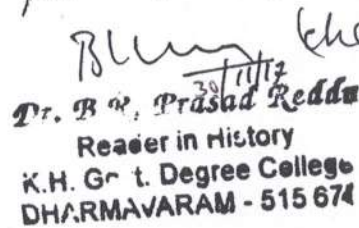 30/11/17
Dr. B R. Prasad Reddy
Reader in History
K.H. Govt. Degree College
DHARMAVARAM - 515 674